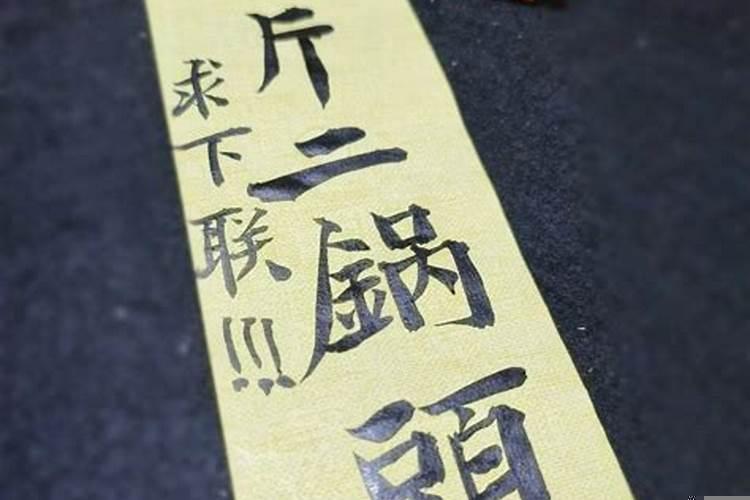 斤二鍋頭
求下联!!!